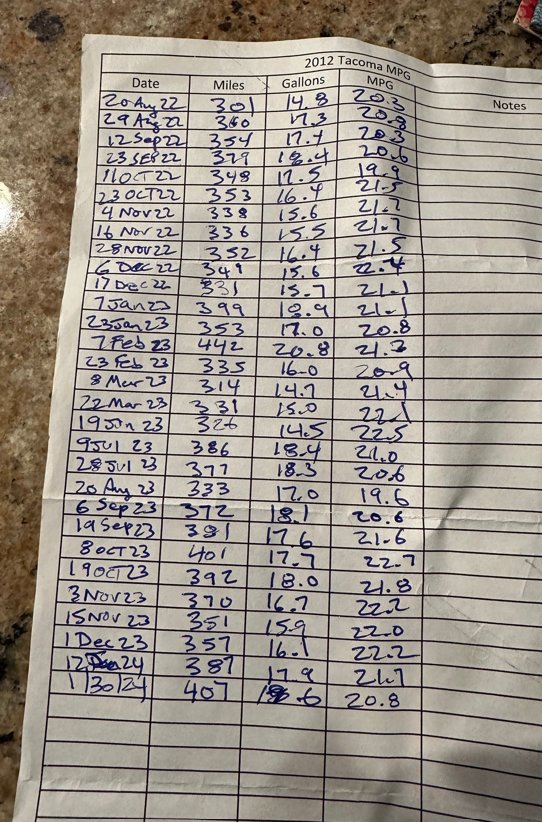 2012 Tacoma MPG
Date Miles Gallons MPG Notes
20 Aug 22 301 14.8 20.3
29 Aug 22 360 17.3 20.8
12 Sep 22 354 17.4 20.3
23 SEP 22 379 18.4 20.6
11 OCT 22 348 17.5 19.9
23 OCT 22 353 16.4 21.5
4 NOV 22 338 15.6 21.7
16 NOV 22 336 15.5 21.7
28 NOV 22 352 16.4 21.5
6 Dec 22 349 15.6 22.4
17 Dec 22 331 15.7 21.1
7 Jan 23 399 18.9 21.1
23 Jan 23 353 17.0 20.8
7 Feb 23 442 20.8 21.3
23 Feb 23 335 16.0 20.9
8 Mar 23 314 14.7 21.4
22 Mar 23 331 15.0 22.1
19 Jun 23 326 14.5 22.5
9 Jul 23 386 18.4 21.0
28 Jul 23 377 18.3 20.6
20 Aug 23 333 17.0 19.6
6 Sep 23 372 18.1 20.6
19 Sep 23 381 17.6 21.6
8 OCT 23 401 17.7 22.7
19 OCT 23 392 18.0 21.8
3 NOV 23 370 16.7 22.2
15 NOV 23 351 15.9 22.0
1 Dec 23 357 16.1 22.2
12 Jan 24 387 17.9 21.7
1/30/24 407 .6 20.8